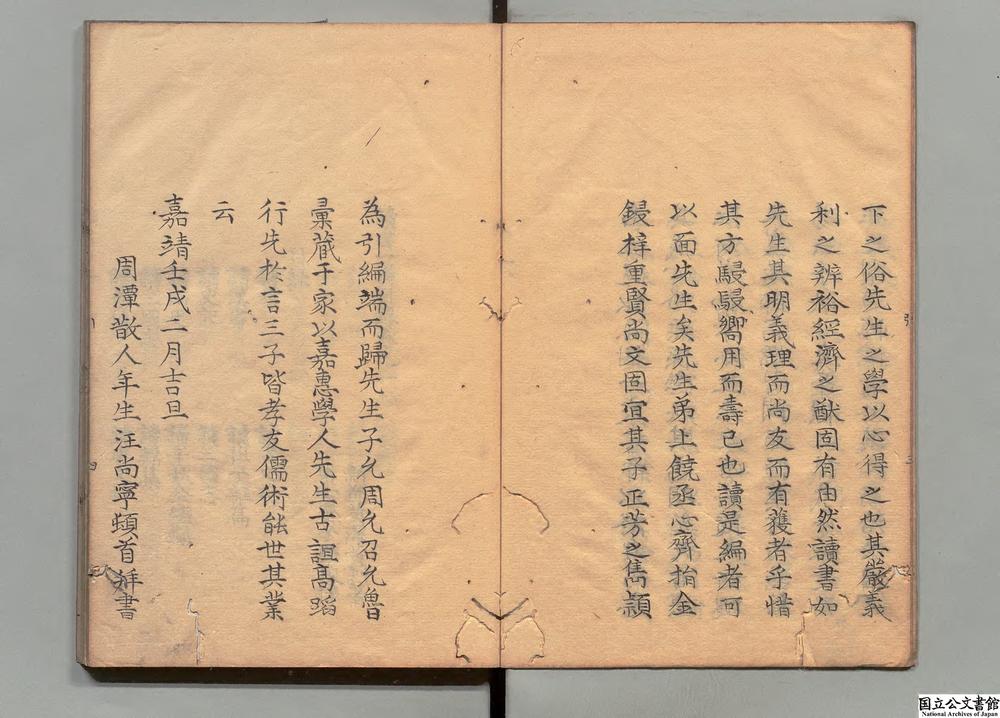 下之俗先生之學以心得之也其嚴義
利之辨裕經濟之猷固有由然讀書如
先生其明義理而尚友而有獲者乎惜
其方駸駸嚮用而壽已也讀是編者可
以面先生矣先生弟上饒丞心齊捐金
鋟梓重賢尚文固宜其子正芳之雋穎
為引編端而歸先生子允周允召允魯
彙蔵于家以嘉惠學人先生古誼髙蹈
行先於言三子皆孝友儒術能世其業
云
嘉靖壬戌二月吉旦
周潭散人年生汪尚寧頓首拜書
引
三
四
国立公文書館
National Archives of Japan